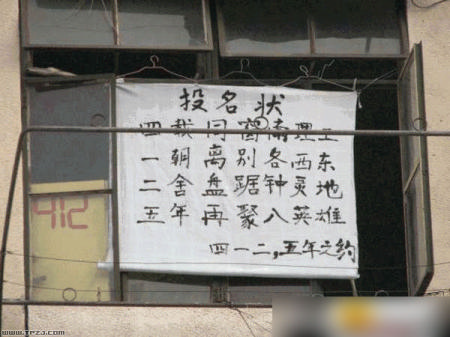 投名状
四载同窗南理工
一朝离别各西东
二舍盘踞钟灵地
五年再聚八英雄
四一二，五年之约
412
www.TPZJ.COM